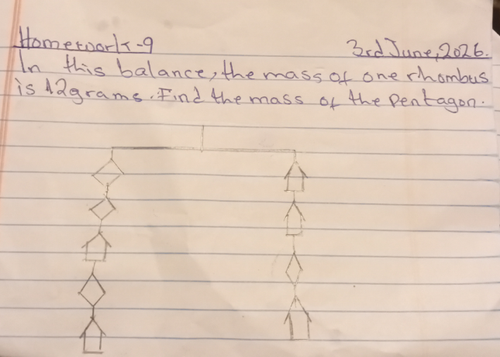 Homework-9 3rd June, 2026.
In this balance, the mass of one rhombus
is 12grams. Find the mass of the pentagon.